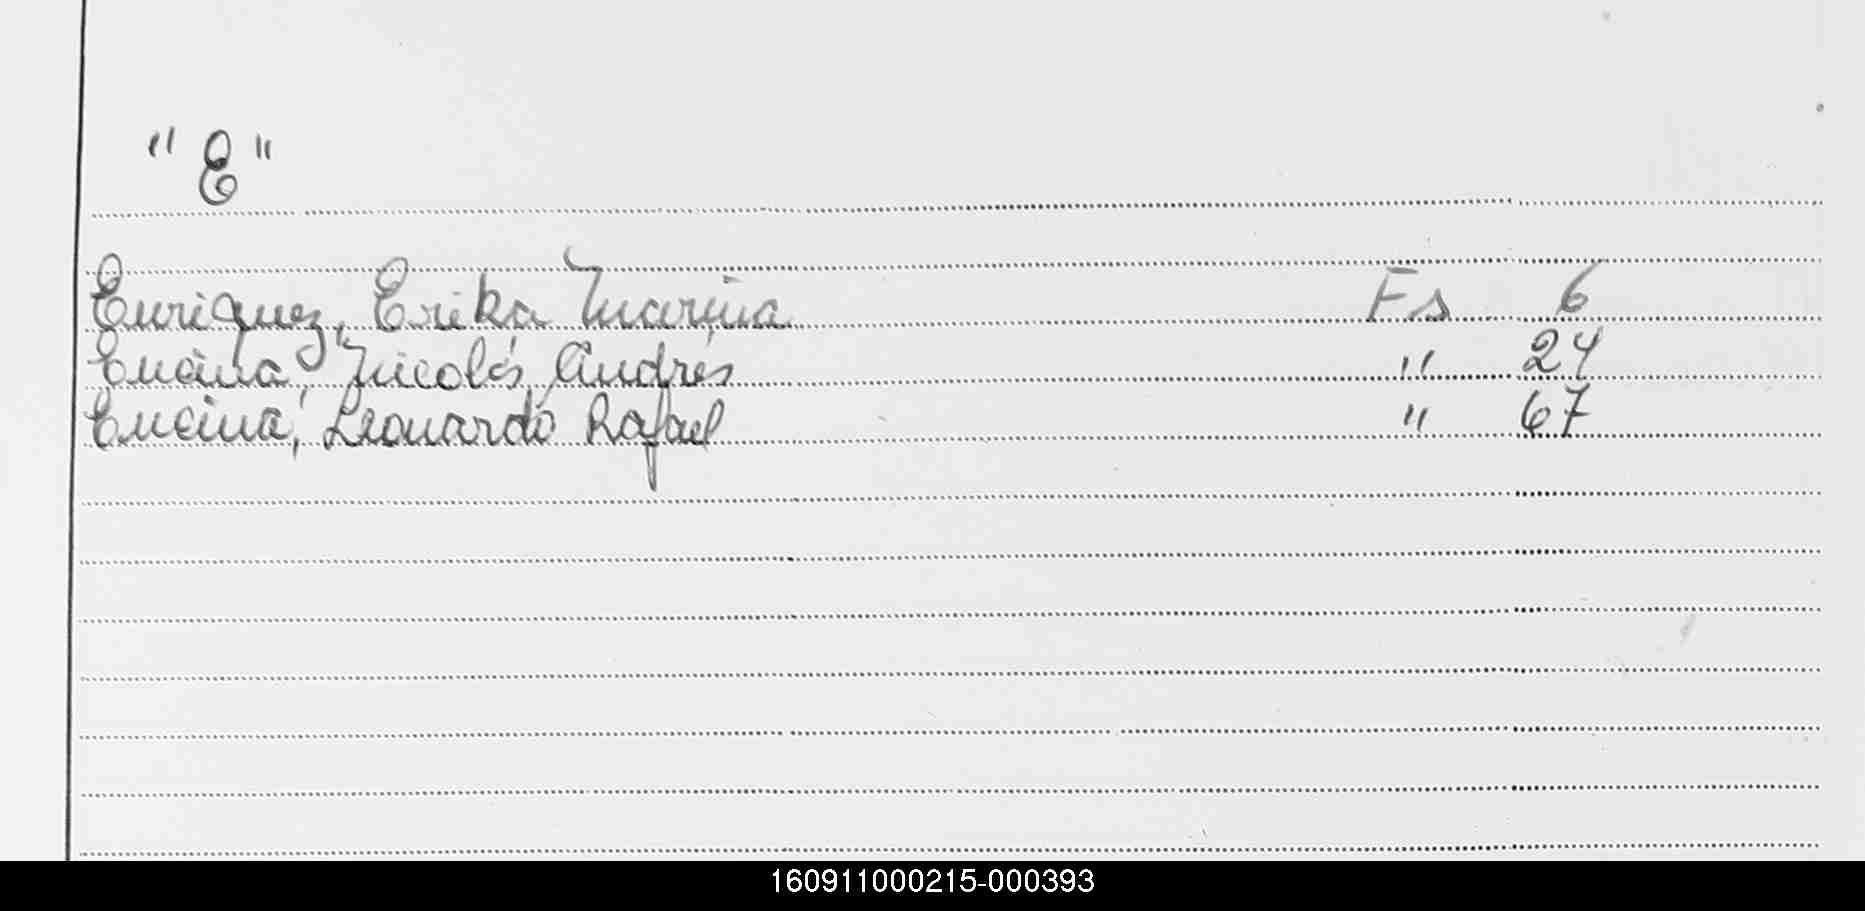 "E"
Enriquez, Erika Marina Fs 6
Encina, Nicolás Andrés " 24
Encina, Leonardo Rafael " 67
160911000215-000393